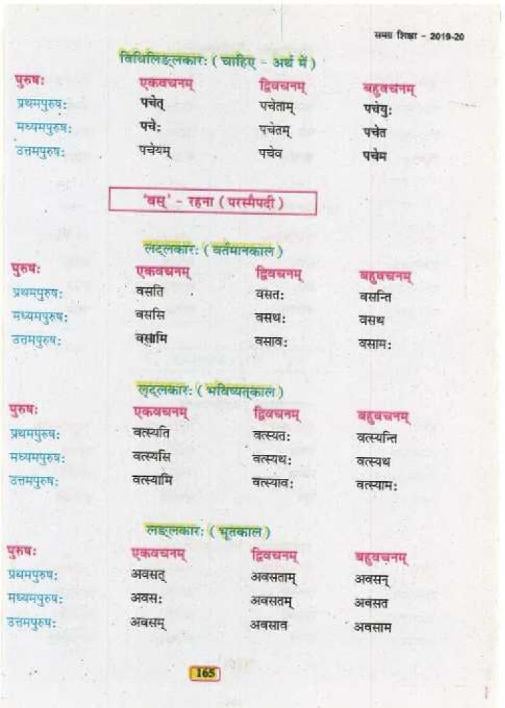 समग्र शिक्षा - 2019-20
विधिलिङ्लकारः ( चाहिए - अर्थ में )
पुरुषः एकवचनम् द्विवचनम् बहुवचनम्
प्रथमपुरुषः पचेत् पचेताम् पचेयुः
मध्यमपुरुषः पचेः पचेतम् पचेत
उत्तमपुरुषः पचेयम् पचेव पचेम
'वस्' - रहना ( परस्मैपदी )
लट्लकारः ( वर्तमानकाल )
पुरुषः एकवचनम् द्विवचनम् बहुवचनम्
प्रथमपुरुषः वसति वसतः वसन्ति
मध्यमपुरुषः वससि वसथः वसथ
उत्तमपुरुषः वसामि वसावः वसामः
लृट्लकारः ( भविष्यत्काल )
पुरुषः एकवचनम् द्विवचनम् बहुवचनम्
प्रथमपुरुषः वत्स्यति वत्स्यतः वत्स्यन्ति
मध्यमपुरुषः वत्स्यसि वत्स्यथः वत्स्यथ
उत्तमपुरुषः वत्स्यामि वत्स्यावः वत्स्यामः
लङ्लकारः ( भूतकाल )
पुरुषः एकवचनम् द्विवचनम् बहुवचनम्
प्रथमपुरुषः अवसत् अवसताम् अवसन्
मध्यमपुरुषः अवसः अवसतम् अवसत
उत्तमपुरुषः अवसम् अवसाव अवसाम
165